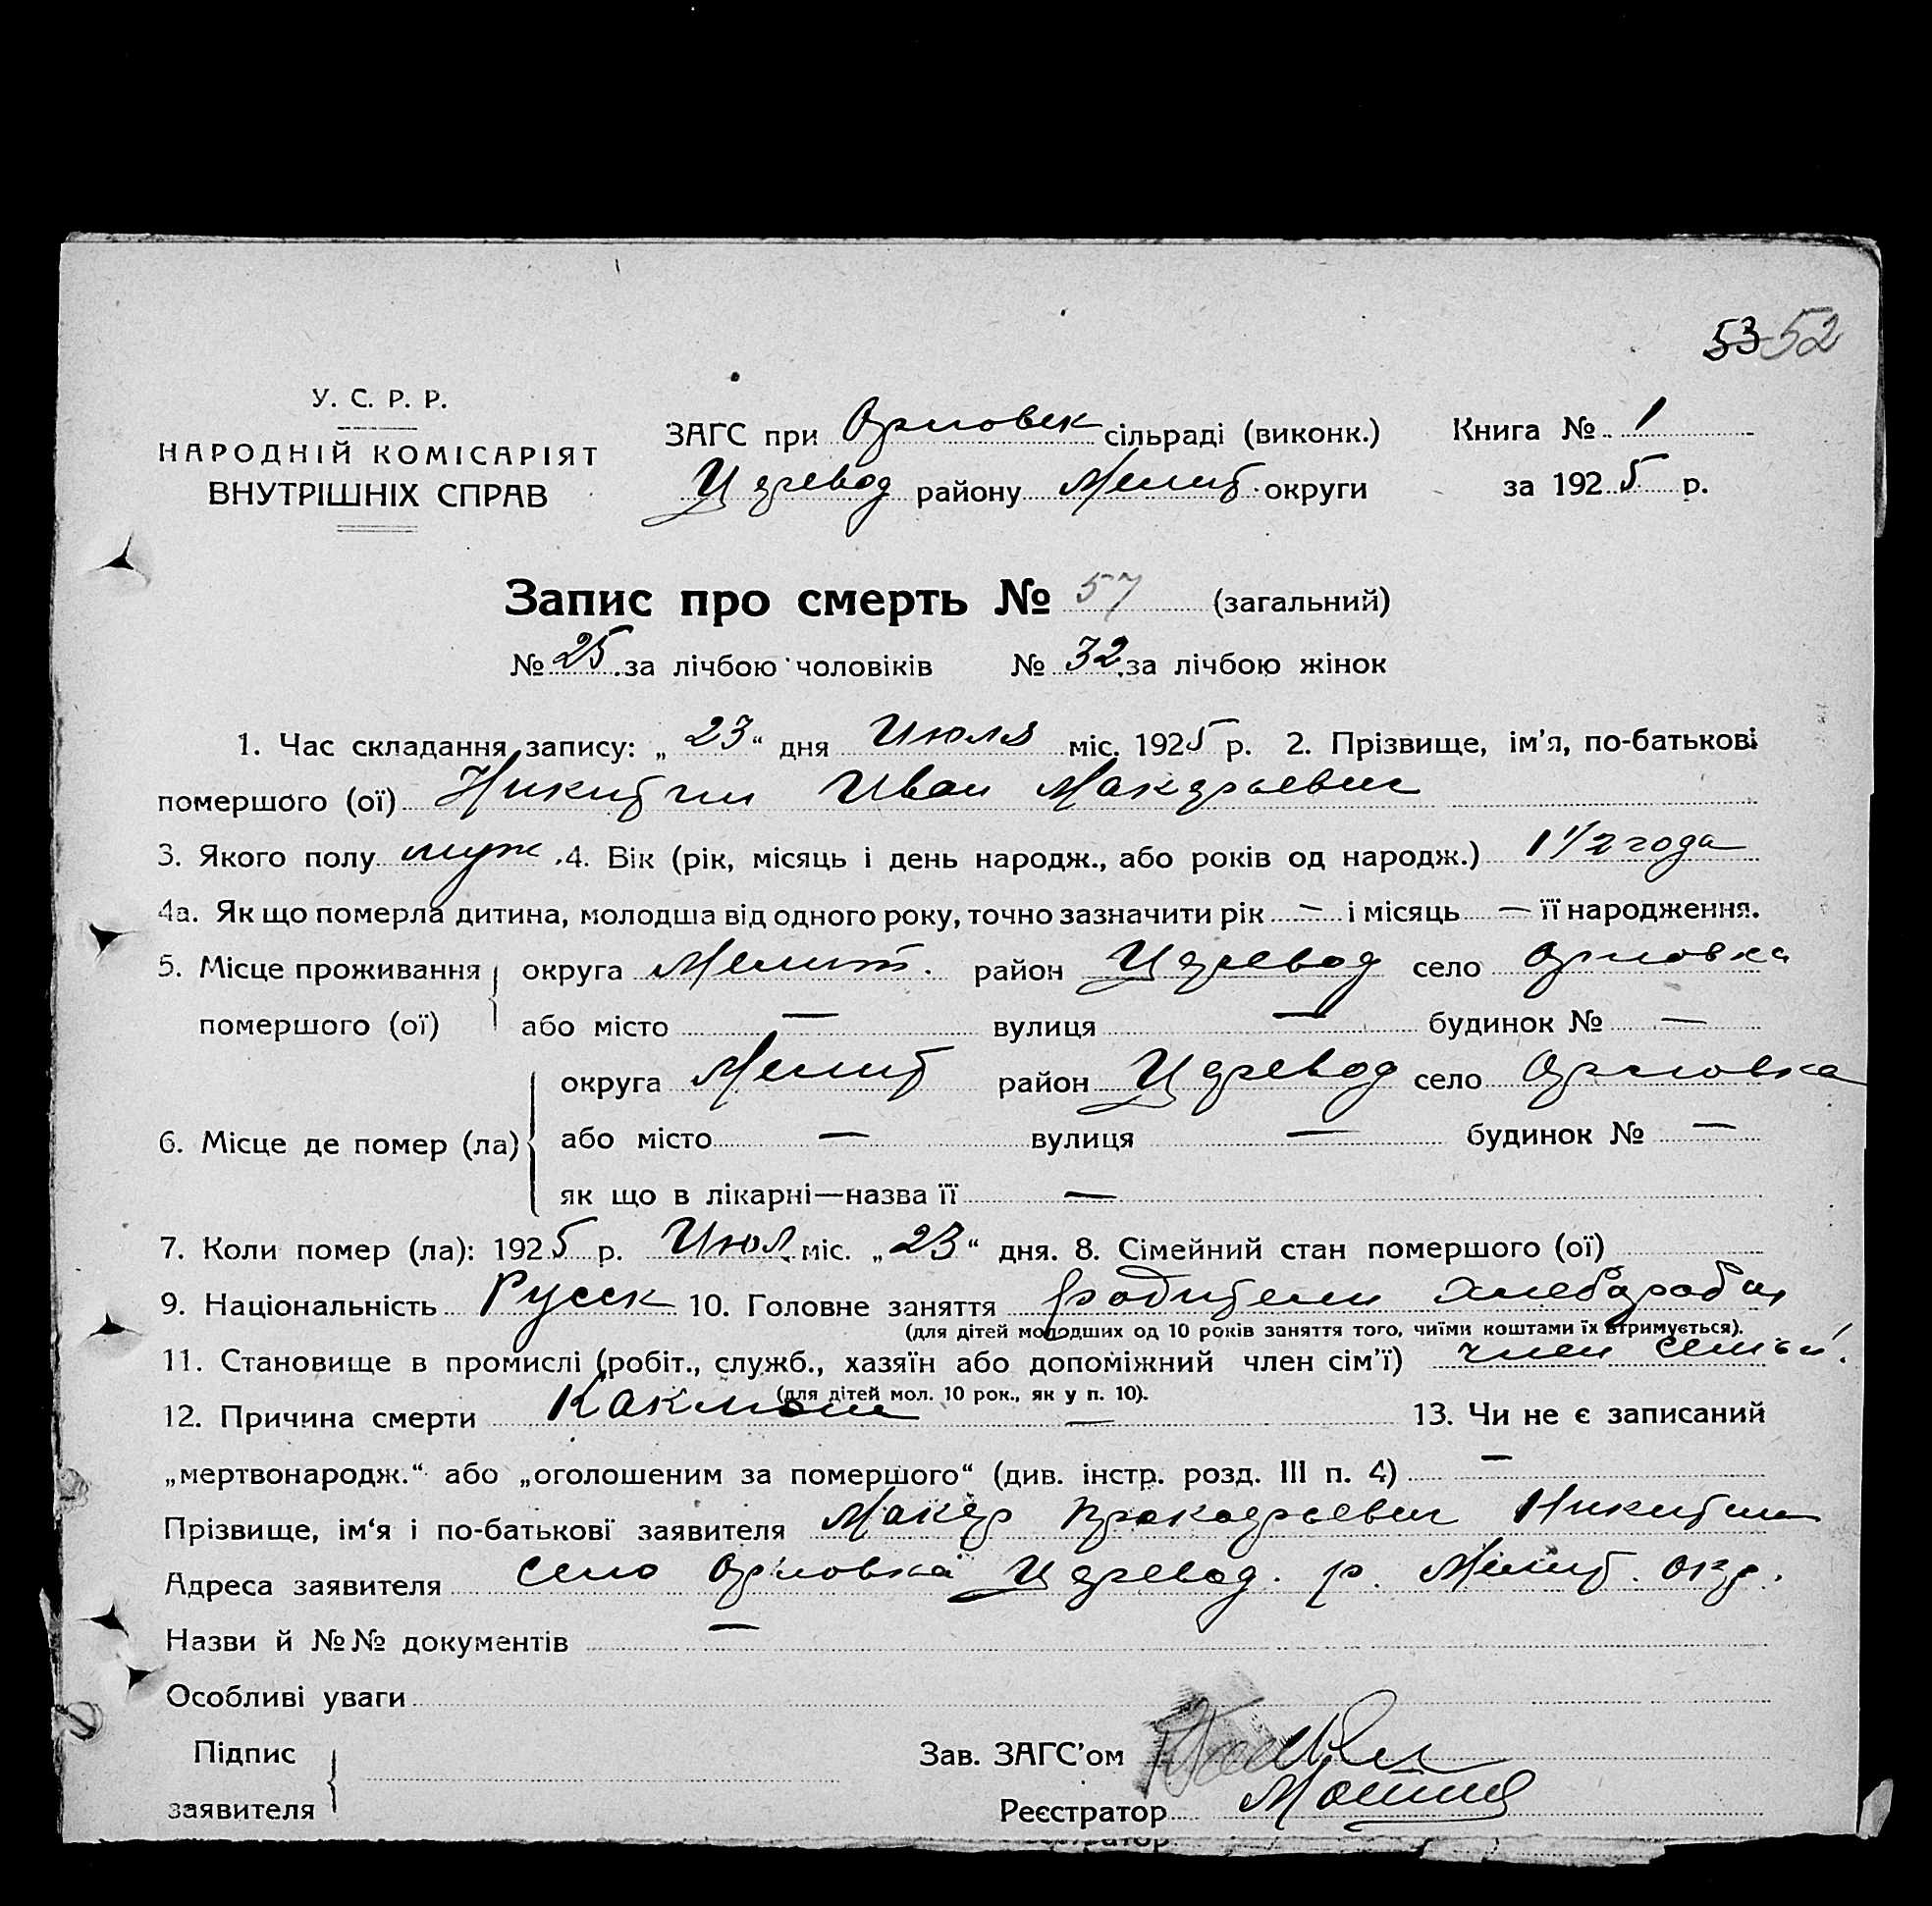 53 52
У. С. Р. Р.
НАРОДНІЙ КОМІСАРІЯТ
ВНУТРІШНІХ СПРАВ
ЗАГС при Орловск сільраді (виконк.)
Книга № 1
Ц древод району Мелит. округи
за 1925 р.
Запис про смерть № 57 (загальний)
№ 25 за лічбою чоловіків № 32 за лічбою жінок
1. Час складання запису: „23“ дня Июля міс. 1925 р. 2. Прізвище, ім'я, по-батькові
помершого (ої) Никитин Иван Макарьевич
3. Якого полу муж. 4. Вік (рік, місяць і день народж., або років од народж.) 1 1/2 года
4а. Як що померла дитина, молодша від одного року, точно зазначити рік — і місяць — її народження.
5. Місце проживання помершого (ої) округа Мелит. район Ц древод село Орловка
або місто — вулиця — будинок № —
6. Місце де помер (ла) округа Мелит район Ц древод село Орловка
або місто — вулиця — будинок № —
як що в лікарні—назва її —
7. Коли помер (ла): 1925 р. Июл. міс. „23“ дня. 8. Сімейний стан помершого (ої)
9. Національність Русск 10. Головне заняття родители
(для дітей молодших од 10 років заняття того, чиїми коштами їх втримується).
11. Становище в промислі (робіт., служб., хазяїн або допоміжний член сім'ї) член семьи
(для дітей мол. 10 рок., як у п. 10).
12. Причина смерти — 13. Чи не є записаний
„мертвонародж.“ або „оголошеним за помершого“ (див. інстр. розд. III п. 4) —
Прізвище, ім'я і по-батькові заявителя Макар Никитин
Адреса заявителя село Орловка Ц древод. р. Мелит. окр.
Назви й №№ документів —
Особливі уваги
Підпис заявителя
Зав. ЗАГС'ом
Реєстратор